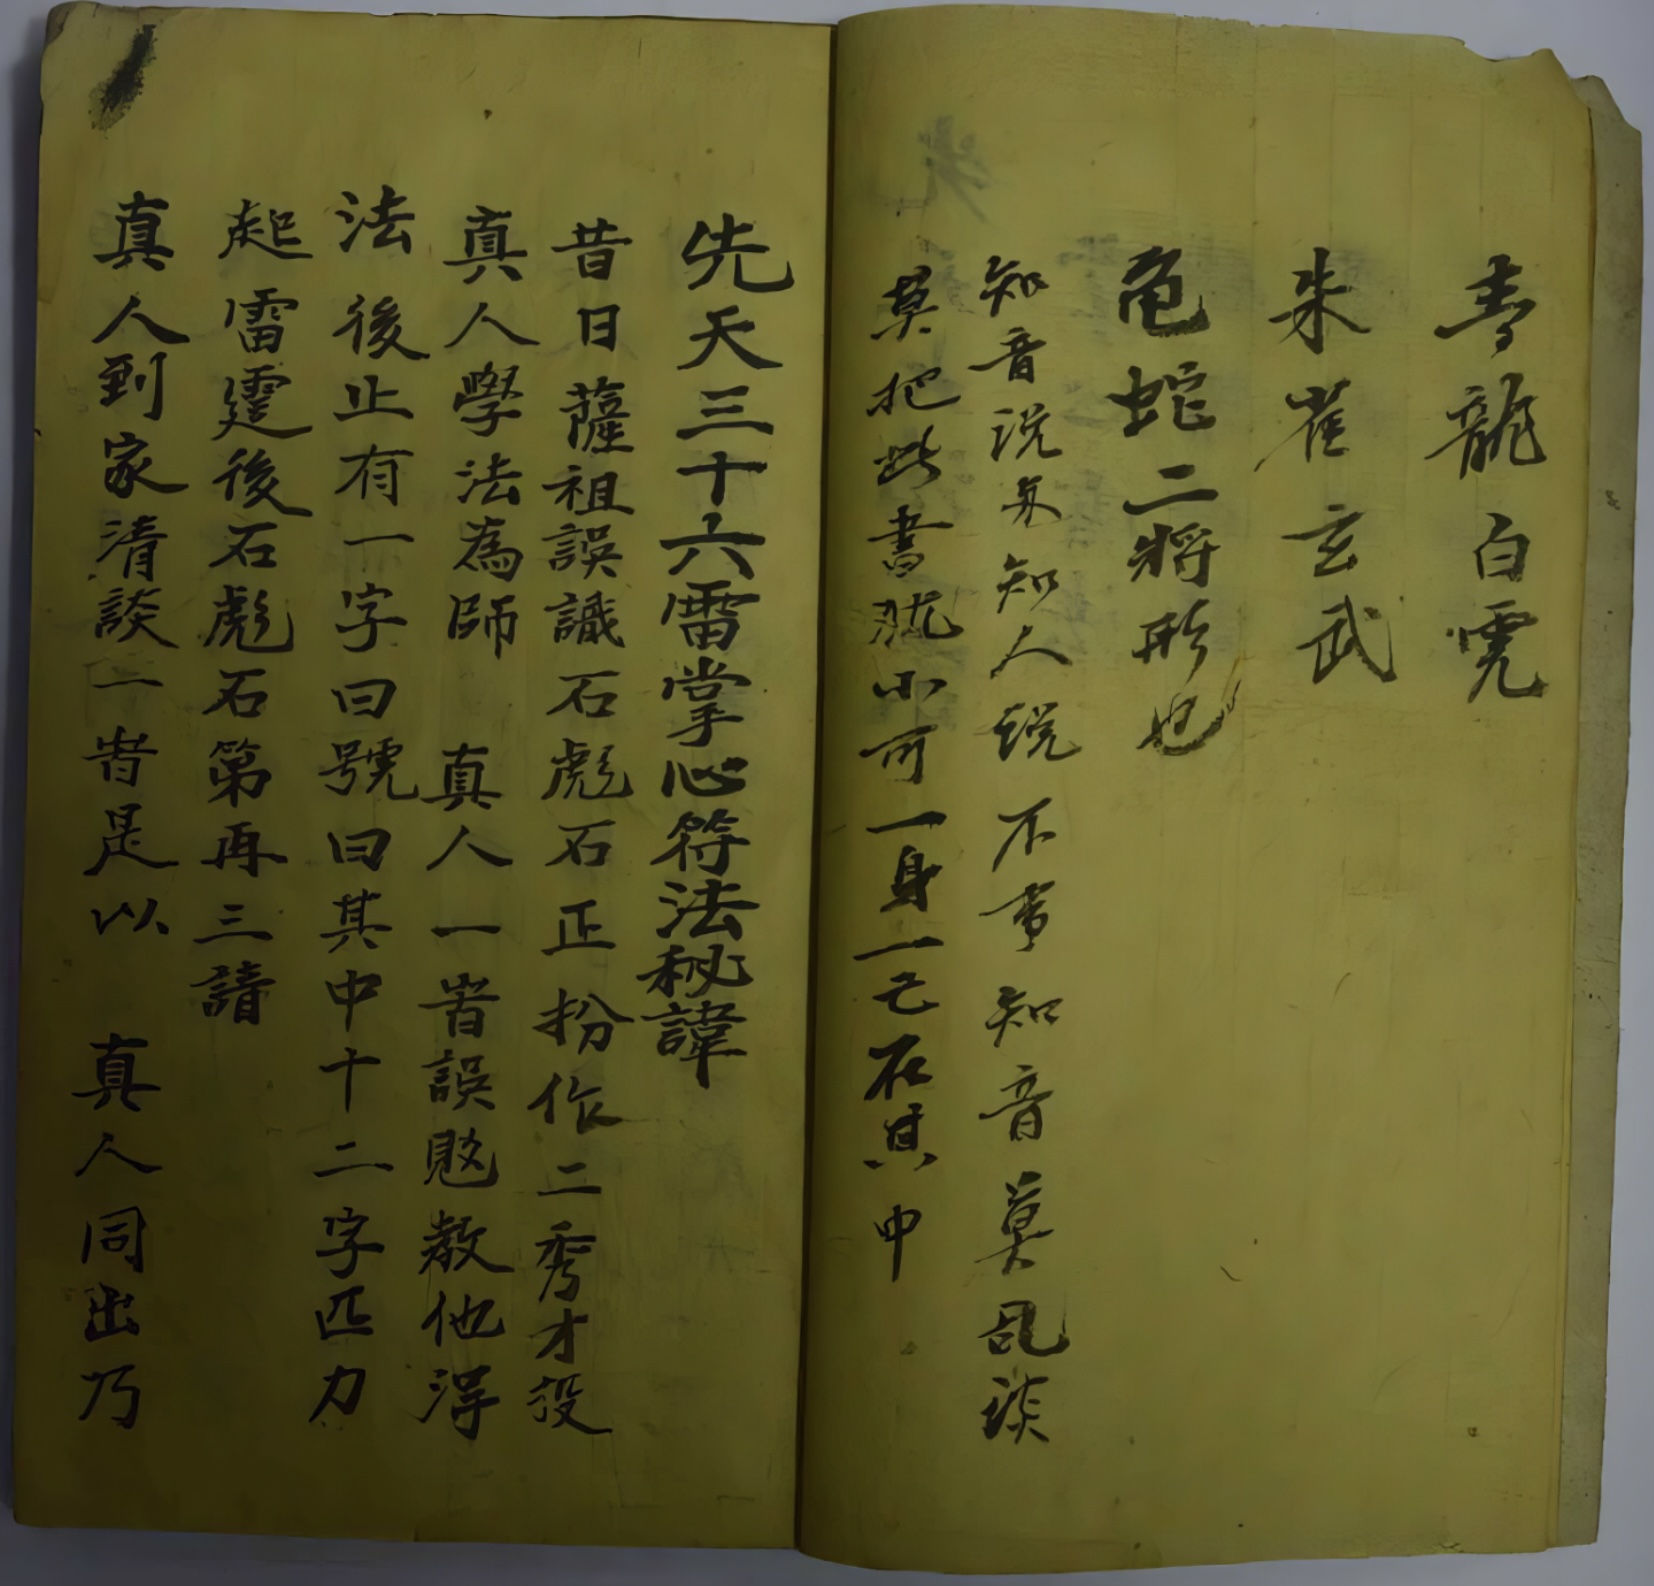 青龍白虎
朱雀玄武
龟蛇二將形也
知音说与知人说不忄知音莫乱谈
莫把此書就小可一身一己在其中
先天三十六雷掌心符法秘諱
昔日薩祖誤識石彪石正扮作二秀才投
真人學法為師 真人一昔誤敗教他得
法後止有一字曰號曰其中十二字匹力
起雷霆後石彪石第再三請
真人到家清談二昔是以 真人同出乃